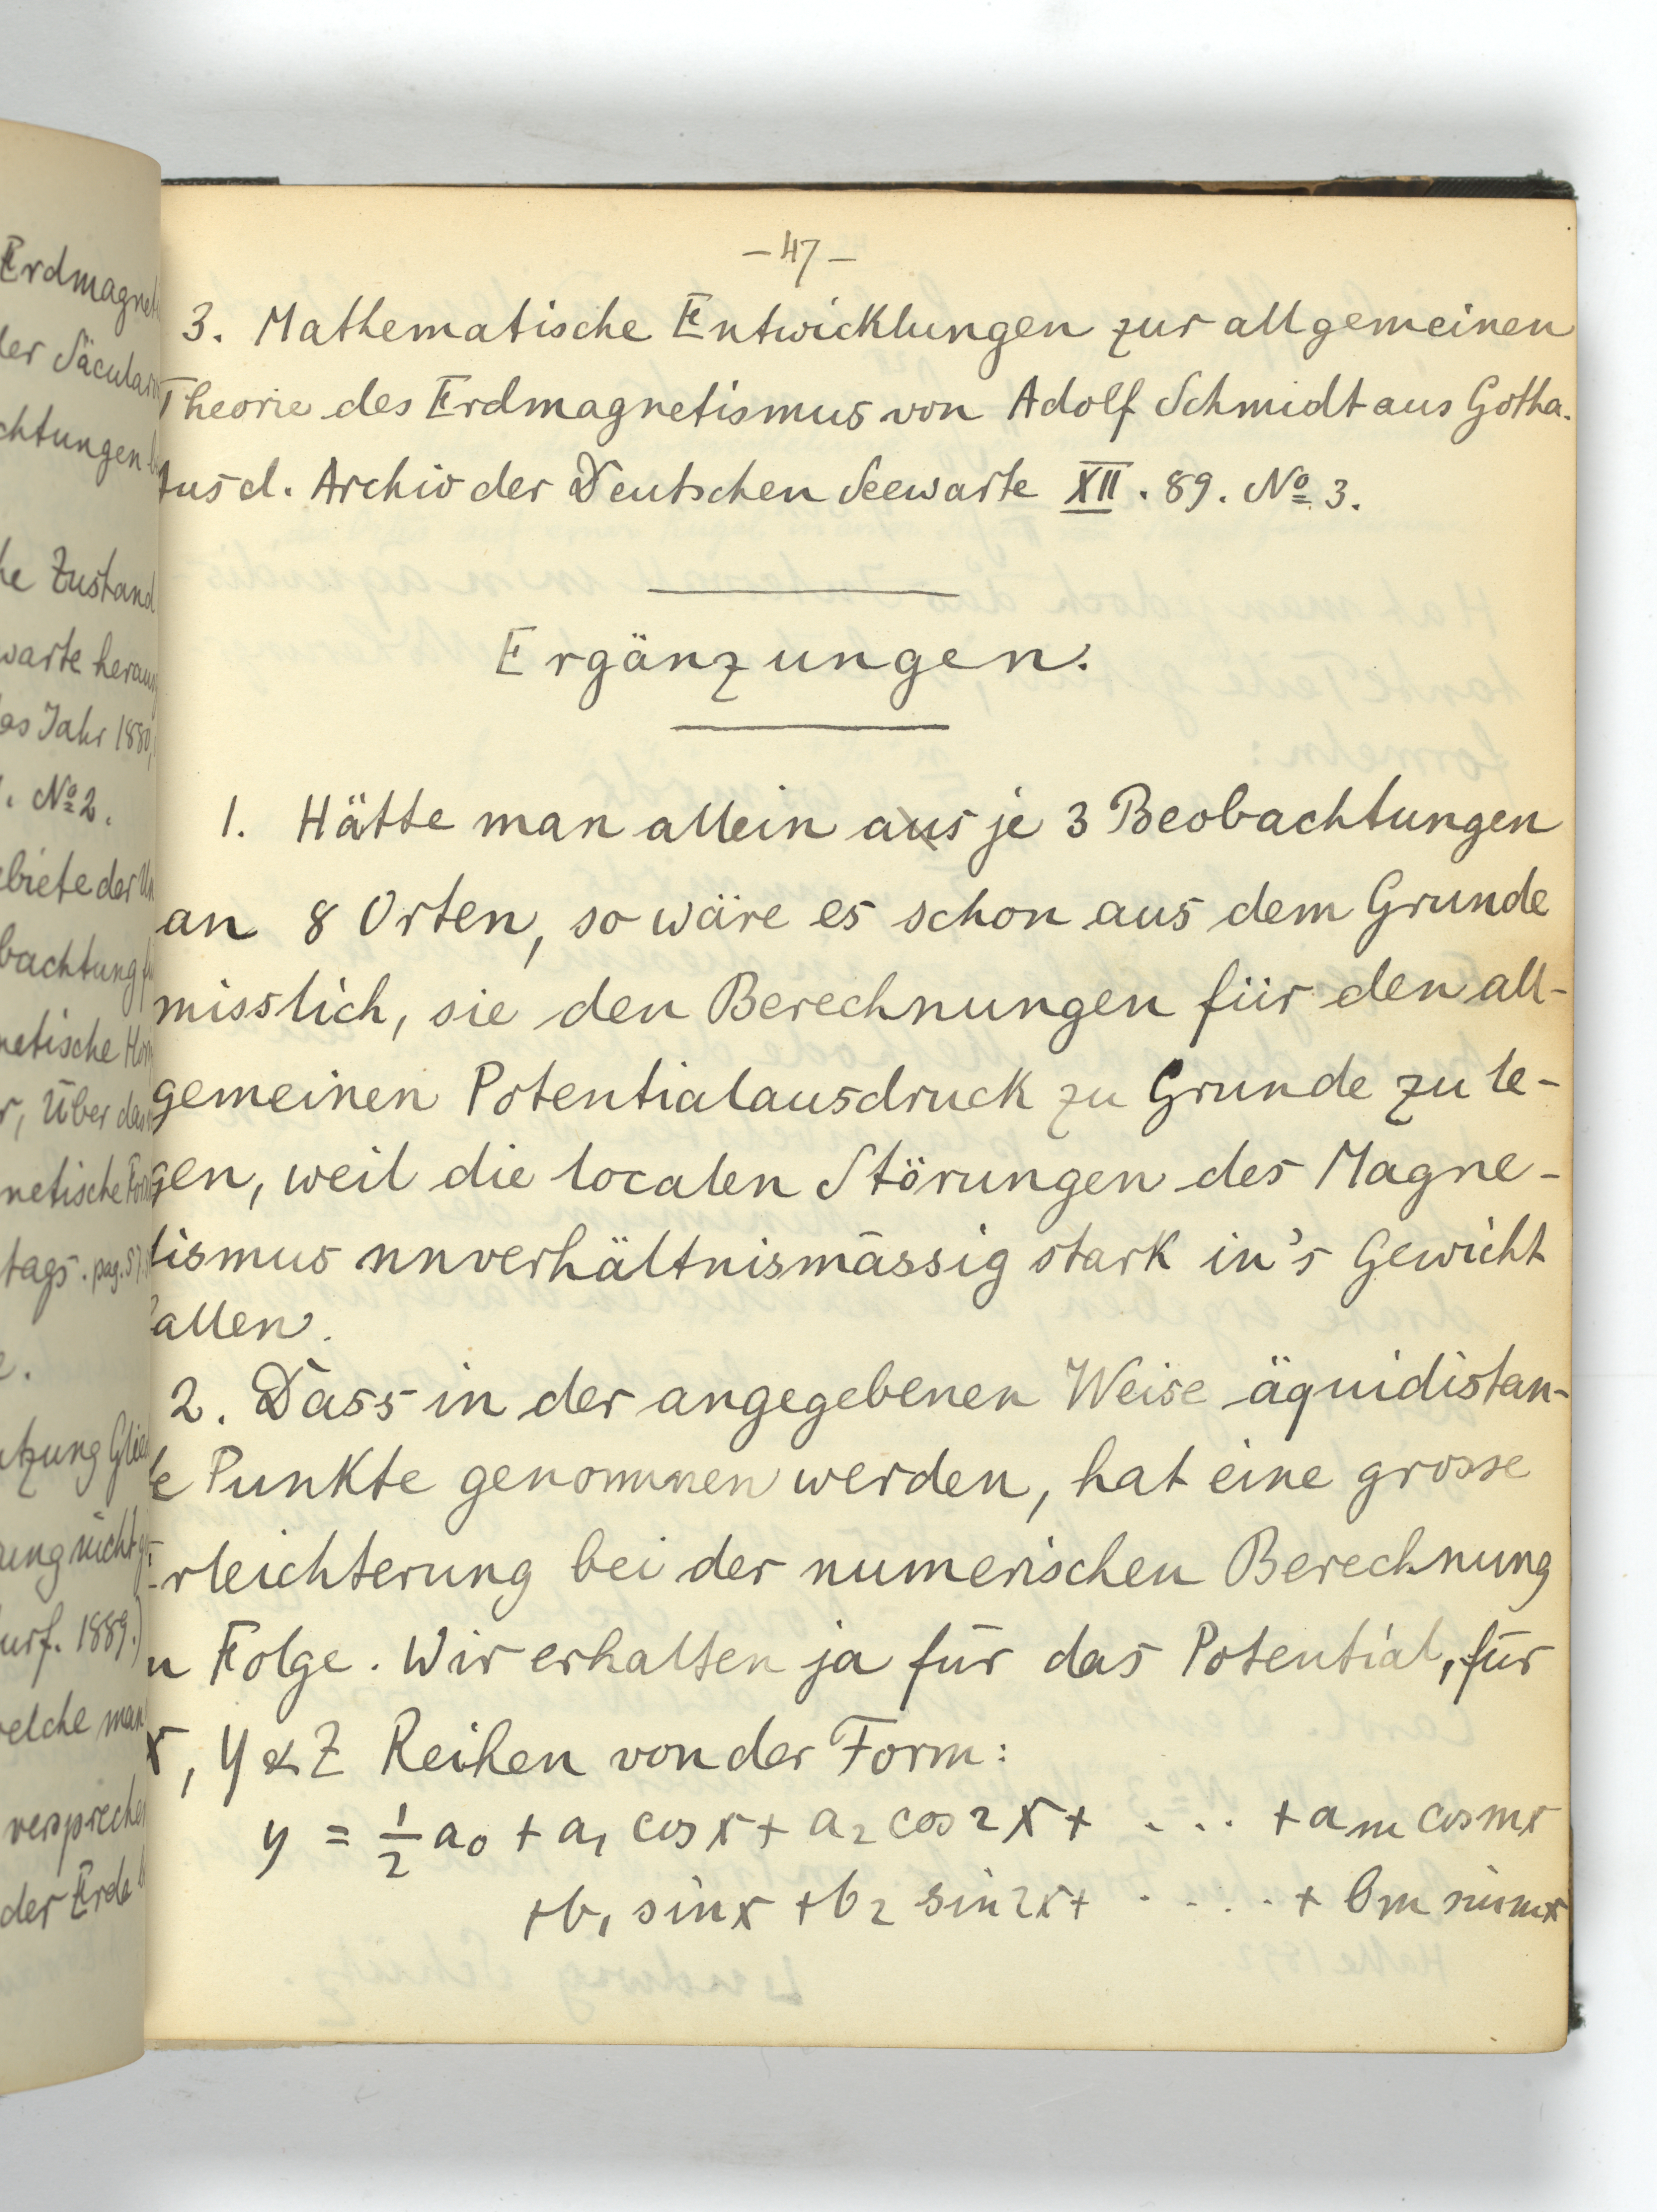 Erdmagnet
ler Säcular
chtungen
he Zustand
warte heraus
as Jahr 1880,
. No 2.
ebiete der Un
bachtung
netische Hor
r, Über den
netische
tags. pag.
e.
tzung Glie
ung nicht
urf. 1889.)
welche man
versprechen
der Erde
– 47 –
3. Mathematische Entwicklungen zur allgemeinen
Theorie des Erdmagnetismus von Adolf Schmidt aus Gotha.
Aus d. Archiv der Deutschen Seewarte XII. 89. No 3.
Ergänzungen.
1. Hätte man allein aus je 3 Beobachtungen
an 8 Orten, so wäre es schon aus dem Grunde
misslich, sie den Berechnungen für den all-
gemeinen Potentialausdruck zu Grunde zu le-
gen, weil die localen Störungen des Magne-
tismus unverhältnismässig stark in's Gewicht
fallen.
2. Dass in der angegebenen Weise äquidistan-
te Punkte genommen werden, hat eine grosse
Erleichterung bei der numerischen Berechnung
n Folge. Wir erhalten ja für das Potential, für
X, Y & Z Reihen von der Form:
y = 1/2 a0 + a1 cos x + a2 cos 2x + . . . . + am cos mx
+ b1 sin x + b2 sin 2x + . . . . . + bm sin mx